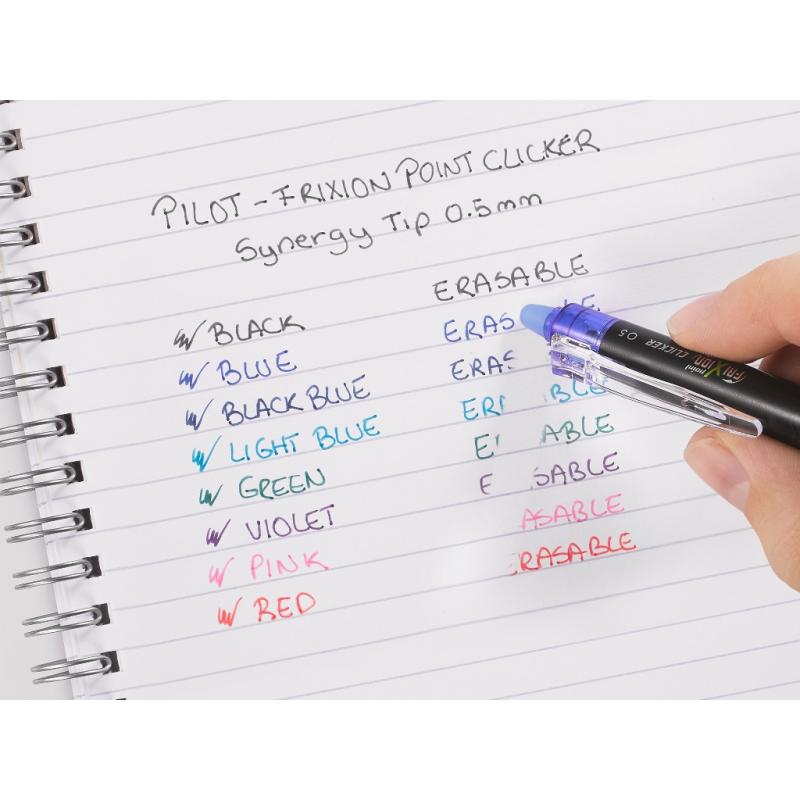 PILOT - FRIXION POINT CLICKER
Synergy Tip 0.5mm
BLACK
BLUE
BLACK BLUE
LIGHT BLUE
GREEN
VIOLET
PINK
RED
ERASABLE
ERAS LE
ERAS
ER BLE
E ABLE
E SABLE
ASABLE
RASABLE
FRIXION point CLICKER 0.5